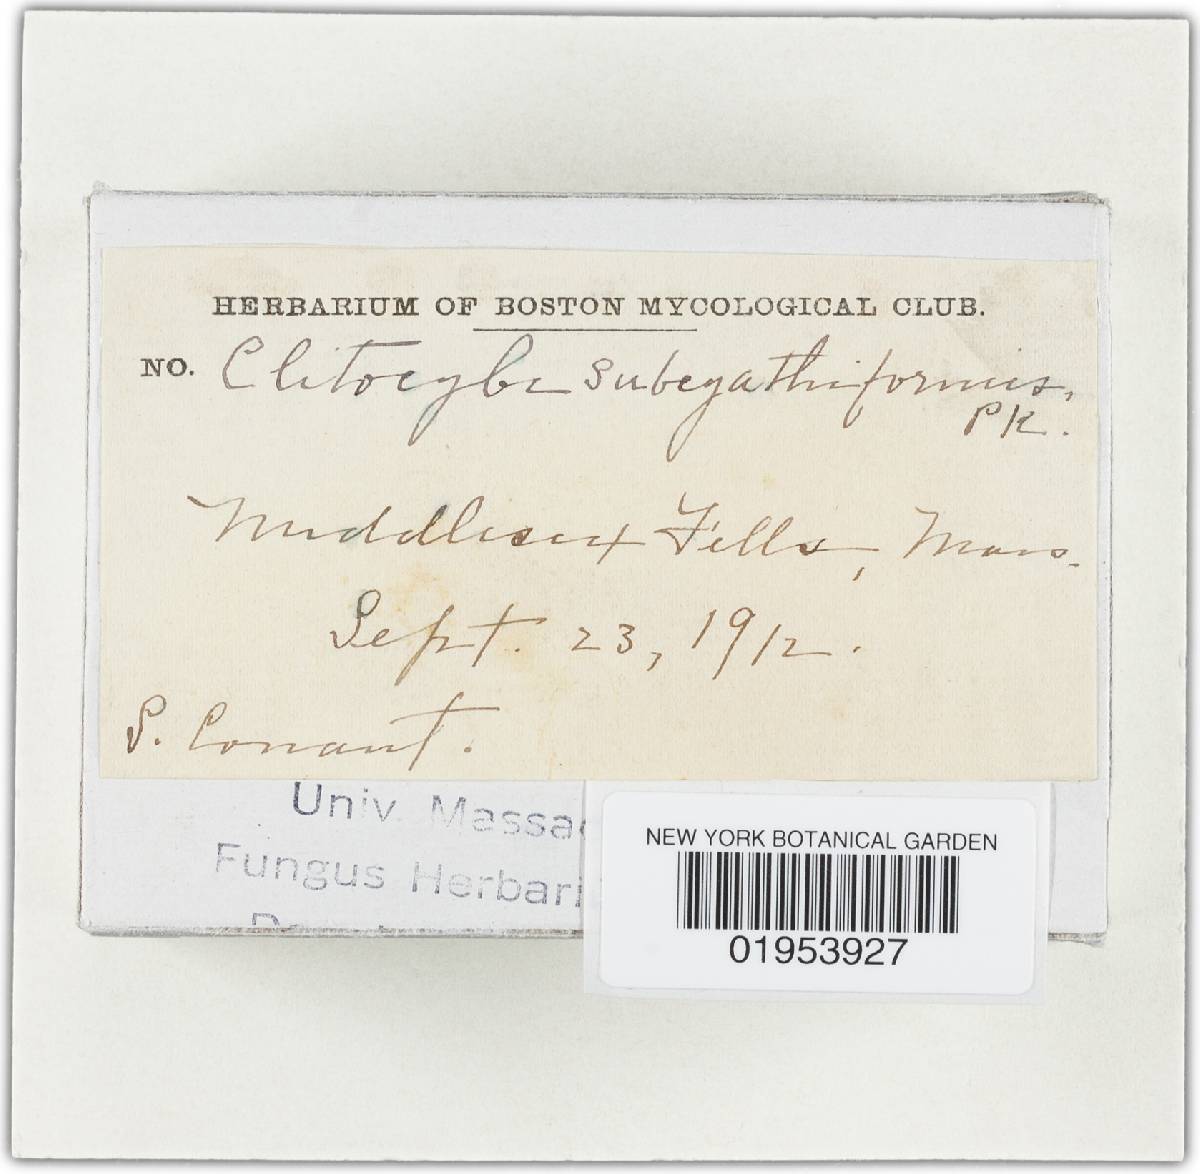 HERBARIUM OF BOSTON MYCOLOGICAL CLUB.
NO. Clitocybe subcyathiformis,
PK.
Middlesex Fells, Mass.
Sept. 23, 1912.
S. Conant.
Univ. Massac
Fungus Herbari
NEW YORK BOTANICAL GARDEN
01953927